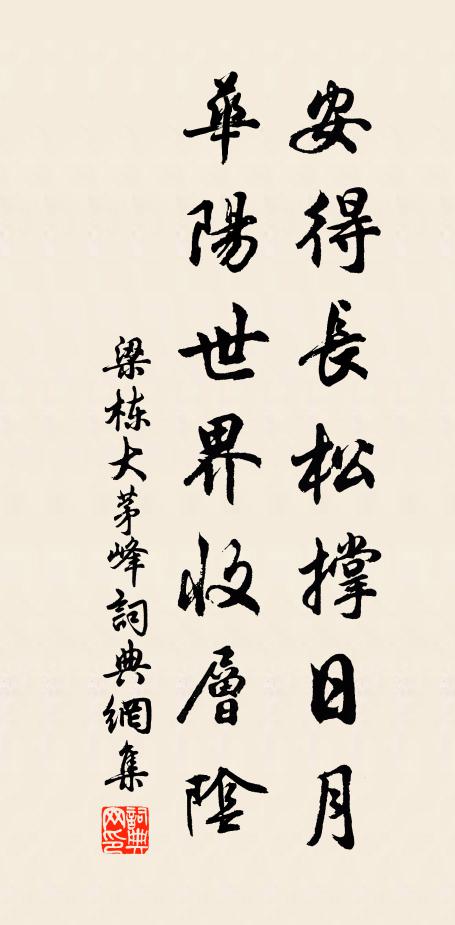 安得長松撐日月
華陽世界收層陰
梁栋大茅峰詞典網集
詞典网印